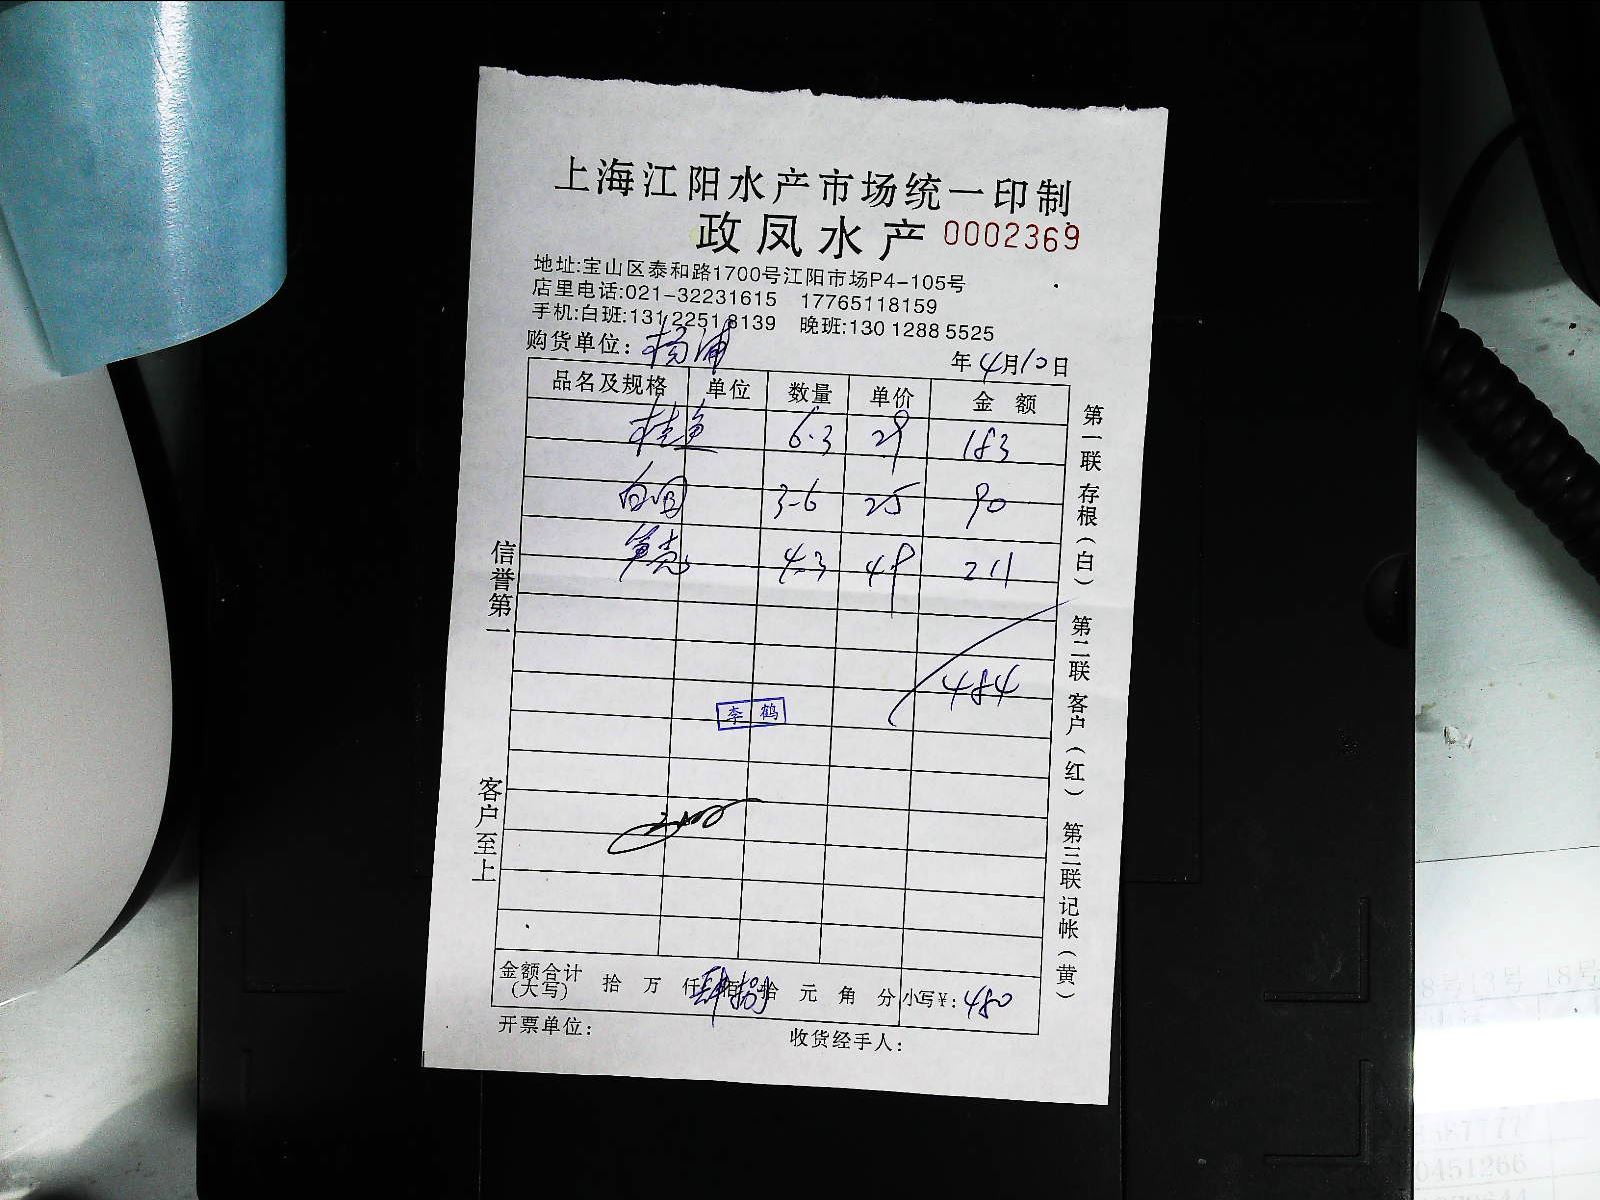 上海江阳水产市场统一印制
政凤水产 0002369
地址:宝山区泰和路1700号江阳市场P4-105号
店里电话:021-32231615 17765118159
手机:白班:131 2251 8139 晚班:130 1288 5525
购货单位: 杨浦 年 4月10日
品名及规格 单位 数量 单价 金额
桂鱼 6.3 29 183
白 3.6 25 90
笋壳 4.3 49 211
484
李鹤
金额合计(大写) 拾 万 仟 肆佰捌拾 元 角 分 小写¥: 480
开票单位: 收货经手人:
信誉第一
客户至上
第一联 存根(白) 第二联 客户(红) 第三联 记帐(黄)
8号 18号
0451266